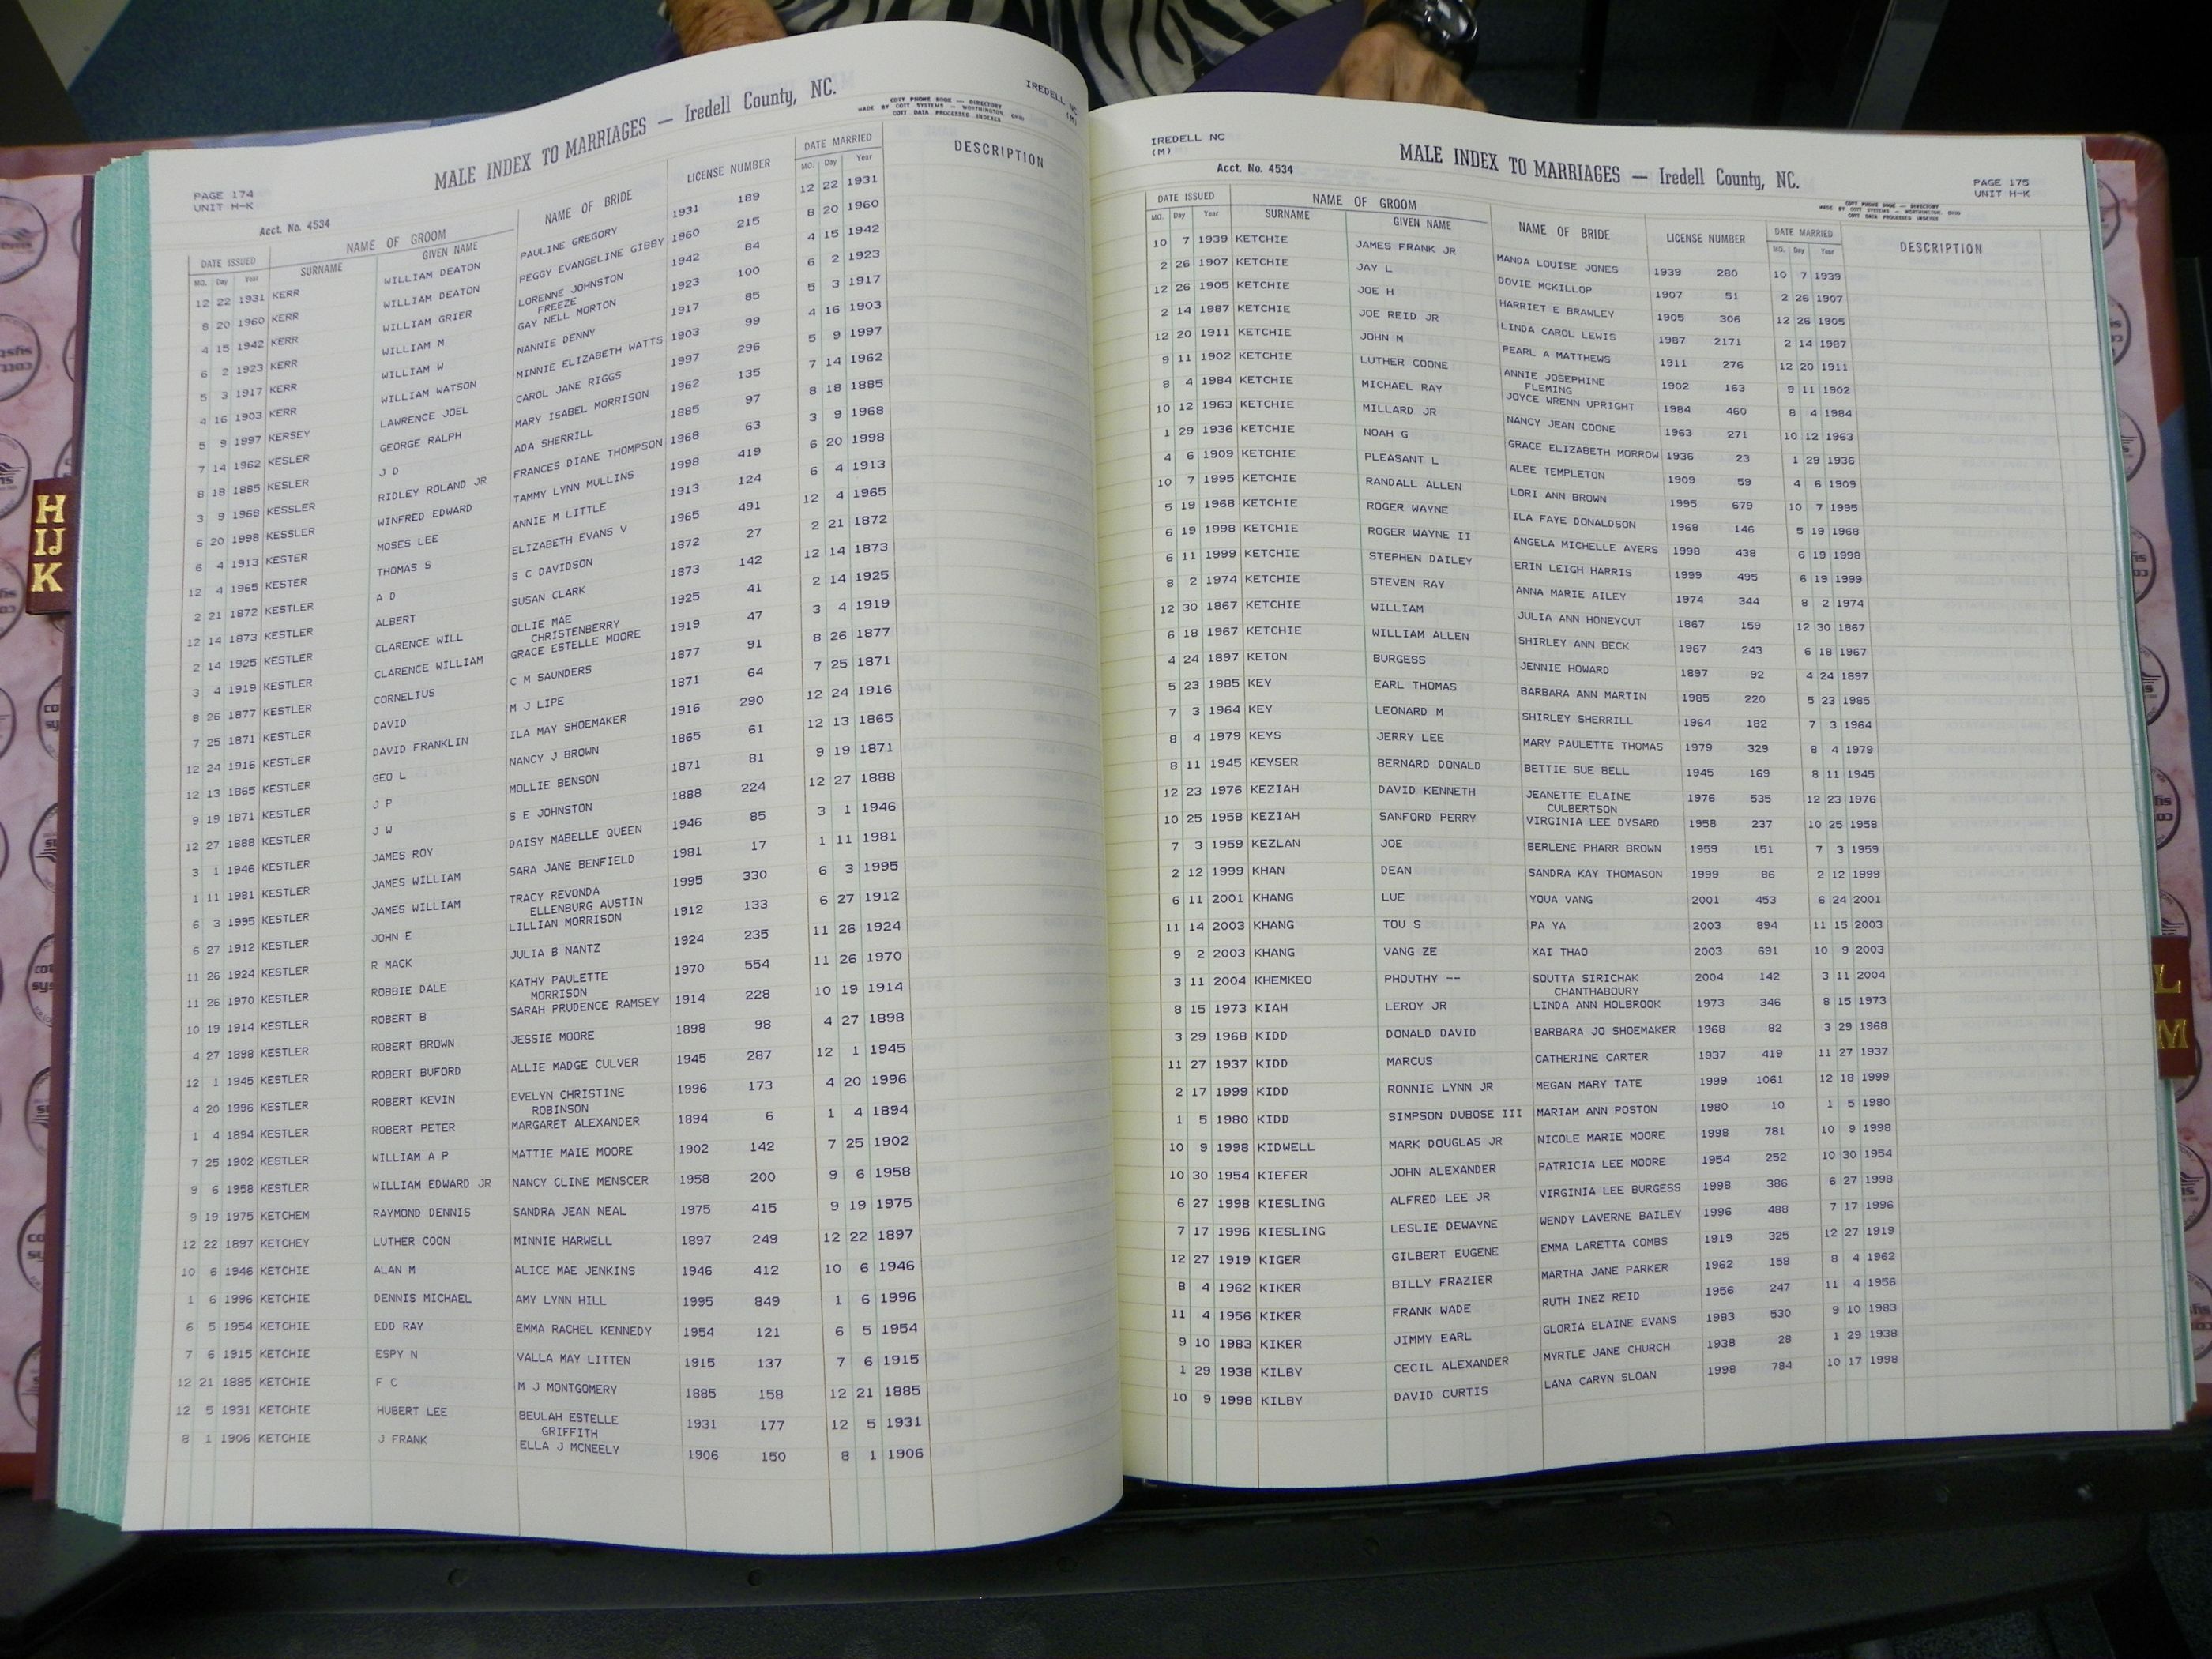 PAGE 174
UNIT H-K
Acct. No. 4534
MALE INDEX TO MARRIAGES — Iredell County, NC.
MADE BY COTT SYSTEMS — WORTHINGTON, OHIO
COTT DATA PROCESSED INDEXES
IREDELL NC
(M)
DATE ISSUED NAME OF GROOM NAME OF BRIDE LICENSE NUMBER DATE MARRIED DESCRIPTION
MO. Day Year SURNAME GIVEN NAME MO. Day Year
12 22 1931 KERR WILLIAM DEATON PAULINE GREGORY 1931 189 12 22 1931
8 20 1960 KERR WILLIAM DEATON PEGGY EVANGELINE GIBBY 1960 215 8 20 1960
4 15 1942 KERR WILLIAM GRIER LORENNE JOHNSTON 1942 84 4 15 1942
FREEZE
6 2 1923 KERR WILLIAM M GAY NELL MORTON 1923 100 6 2 1923
5 3 1917 KERR WILLIAM W NANNIE DENNY 1917 85 5 3 1917
4 16 1903 KERR WILLIAM WATSON MINNIE ELIZABETH WATTS 1903 99 4 16 1903
5 9 1997 KERSEY LAWRENCE JOEL CAROL JANE RIGGS 1997 296 5 9 1997
7 14 1962 KESLER GEORGE RALPH MARY ISABEL MORRISON 1962 135 7 14 1962
8 18 1885 KESLER J D ADA SHERRILL 1885 97 8 18 1885
3 9 1968 KESSLER RIDLEY ROLAND JR FRANCES DIANE THOMPSON 1968 63 3 9 1968
6 20 1998 KESSLER WINFRED EDWARD TAMMY LYNN MULLINS 1998 419 6 20 1998
6 4 1913 KESTER MOSES LEE ANNIE M LITTLE 1913 124 6 4 1913
12 4 1965 KESTER THOMAS S ELIZABETH EVANS V 1965 491 12 4 1965
2 21 1872 KESTLER A D S C DAVIDSON 1872 27 2 21 1872
12 14 1873 KESTLER ALBERT SUSAN CLARK 1873 142 12 14 1873
2 14 1925 KESTLER CLARENCE WILL OLLIE MAE 1925 41 2 14 1925
CHRISTENBERRY
3 4 1919 KESTLER CLARENCE WILLIAM GRACE ESTELLE MOORE 1919 47 3 4 1919
8 26 1877 KESTLER CORNELIUS C M SAUNDERS 1877 91 8 26 1877
7 25 1871 KESTLER DAVID M J LIPE 1871 64 7 25 1871
12 24 1916 KESTLER DAVID FRANKLIN ILA MAY SHOEMAKER 1916 290 12 24 1916
12 13 1865 KESTLER GEO L NANCY J BROWN 1865 61 12 13 1865
9 19 1871 KESTLER J P MOLLIE BENSON 1871 81 9 19 1871
12 27 1888 KESTLER J W S E JOHNSTON 1888 224 12 27 1888
3 1 1946 KESTLER JAMES ROY DAISY MABELLE QUEEN 1946 85 3 1 1946
1 11 1981 KESTLER JAMES WILLIAM SARA JANE BENFIELD 1981 17 1 11 1981
6 3 1995 KESTLER JAMES WILLIAM TRACY REVONDA 1995 330 6 3 1995
ELLENBURG AUSTIN
6 27 1912 KESTLER JOHN E LILLIAN MORRISON 1912 133 6 27 1912
11 26 1924 KESTLER R MACK JULIA B NANTZ 1924 235 11 26 1924
11 26 1970 KESTLER ROBBIE DALE KATHY PAULETTE 1970 554 11 26 1970
MORRISON
10 19 1914 KESTLER ROBERT B SARAH PRUDENCE RAMSEY 1914 228 10 19 1914
4 27 1898 KESTLER ROBERT BROWN JESSIE MOORE 1898 98 4 27 1898
12 1 1945 KESTLER ROBERT BUFORD ALLIE MADGE CULVER 1945 287 12 1 1945
4 20 1996 KESTLER ROBERT KEVIN EVELYN CHRISTINE 1996 173 4 20 1996
ROBINSON
1 4 1894 KESTLER ROBERT PETER MARGARET ALEXANDER 1894 6 1 4 1894
7 25 1902 KESTLER WILLIAM A P MATTIE MAIE MOORE 1902 142 7 25 1902
9 6 1958 KESTLER WILLIAM EDWARD JR NANCY CLINE MENSCER 1958 200 9 6 1958
9 19 1975 KETCHEM RAYMOND DENNIS SANDRA JEAN NEAL 1975 415 9 19 1975
12 22 1897 KETCHEY LUTHER COON MINNIE HARWELL 1897 249 12 22 1897
10 6 1946 KETCHIE ALAN M ALICE MAE JENKINS 1946 412 10 6 1946
1 6 1996 KETCHIE DENNIS MICHAEL AMY LYNN HILL 1995 849 1 6 1996
6 5 1954 KETCHIE EDD RAY EMMA RACHEL KENNEDY 1954 121 6 5 1954
7 6 1915 KETCHIE ESPY N VALLA MAY LITTEN 1915 137 7 6 1915
12 21 1885 KETCHIE F C M J MONTGOMERY 1885 158 12 21 1885
12 5 1931 KETCHIE HUBERT LEE BEULAH ESTELLE 1931 177 12 5 1931
GRIFFITH
8 1 1906 KETCHIE J FRANK ELLA J MCNEELY 1906 150 8 1 1906
H
IJ
K
IREDELL NC
(M)
Acct. No. 4534
MALE INDEX TO MARRIAGES — Iredell County, NC.
PAGE 175
UNIT H-K
MADE BY COTT SYSTEMS — WORTHINGTON, OHIO
COTT DATA PROCESSED INDEXES
DATE ISSUED NAME OF GROOM NAME OF BRIDE LICENSE NUMBER DATE MARRIED DESCRIPTION
MO. Day Year SURNAME GIVEN NAME MO. Day Year
10 7 1939 KETCHIE JAMES FRANK JR MANDA LOUISE JONES 1939 280 10 7 1939
2 26 1907 KETCHIE JAY L DOVIE MCKILLOP 1907 51 2 26 1907
12 26 1905 KETCHIE JOE H HARRIET E BRAWLEY 1905 306 12 26 1905
2 14 1987 KETCHIE JOE REID JR LINDA CAROL LEWIS 1987 2171 2 14 1987
12 20 1911 KETCHIE JOHN M PEARL A MATTHEWS 1911 276 12 20 1911
9 11 1902 KETCHIE LUTHER COONE ANNIE JOSEPHINE 1902 163 9 11 1902
FLEMING
8 4 1984 KETCHIE MICHAEL RAY JOYCE WRENN UPRIGHT 1984 460 8 4 1984
10 12 1963 KETCHIE MILLARD JR NANCY JEAN COONE 1963 271 10 12 1963
1 29 1936 KETCHIE NOAH G GRACE ELIZABETH MORROW 1936 23 1 29 1936
4 6 1909 KETCHIE PLEASANT L ALEE TEMPLETON 1909 59 4 6 1909
10 7 1995 KETCHIE RANDALL ALLEN LORI ANN BROWN 1995 679 10 7 1995
5 19 1968 KETCHIE ROGER WAYNE ILA FAYE DONALDSON 1968 146 5 19 1968
6 19 1998 KETCHIE ROGER WAYNE II ANGELA MICHELLE AYERS 1998 438 6 19 1998
6 11 1999 KETCHIE STEPHEN DAILEY ERIN LEIGH HARRIS 1999 495 6 19 1999
8 2 1974 KETCHIE STEVEN RAY ANNA MARIE AILEY 1974 344 8 2 1974
12 30 1867 KETCHIE WILLIAM JULIA ANN HONEYCUT 1867 159 12 30 1867
6 18 1967 KETCHIE WILLIAM ALLEN SHIRLEY ANN BECK 1967 243 6 18 1967
4 24 1897 KETON BURGESS JENNIE HOWARD 1897 92 4 24 1897
5 23 1985 KEY EARL THOMAS BARBARA ANN MARTIN 1985 220 5 23 1985
7 3 1964 KEY LEONARD M SHIRLEY SHERRILL 1964 182 7 3 1964
8 4 1979 KEYS JERRY LEE MARY PAULETTE THOMAS 1979 329 8 4 1979
8 11 1945 KEYSER BERNARD DONALD BETTIE SUE BELL 1945 169 8 11 1945
12 23 1976 KEZIAH DAVID KENNETH JEANETTE ELAINE 1976 535 12 23 1976
CULBERTSON
10 25 1958 KEZIAH SANFORD PERRY VIRGINIA LEE DYSARD 1958 237 10 25 1958
7 3 1959 KEZLAN JOE BERLENE PHARR BROWN 1959 151 7 3 1959
2 12 1999 KHAN DEAN SANDRA KAY THOMASON 1999 86 2 12 1999
6 11 2001 KHANG LUE YOUA VANG 2001 453 6 24 2001
11 14 2003 KHANG TOU S PA YA 2003 894 11 15 2003
9 2 2003 KHANG VANG ZE XAI THAO 2003 691 10 9 2003
3 11 2004 KHEMKEO PHOUTHY -- SOUTTA SIRICHAK 2004 142 3 11 2004
CHANTHABOURY
8 15 1973 KIAH LEROY JR LINDA ANN HOLBROOK 1973 346 8 15 1973
3 29 1968 KIDD DONALD DAVID BARBARA JO SHOEMAKER 1968 82 3 29 1968
11 27 1937 KIDD MARCUS CATHERINE CARTER 1937 419 11 27 1937
2 17 1999 KIDD RONNIE LYNN JR MEGAN MARY TATE 1999 1061 12 18 1999
1 5 1980 KIDD SIMPSON DUBOSE III MARIAM ANN POSTON 1980 10 1 5 1980
10 9 1998 KIDWELL MARK DOUGLAS JR NICOLE MARIE MOORE 1998 781 10 9 1998
10 30 1954 KIEFER JOHN ALEXANDER PATRICIA LEE MOORE 1954 252 10 30 1954
6 27 1998 KIESLING ALFRED LEE JR VIRGINIA LEE BURGESS 1998 386 6 27 1998
7 17 1996 KIESLING LESLIE DEWAYNE WENDY LAVERNE BAILEY 1996 488 7 17 1996
12 27 1919 KIGER GILBERT EUGENE EMMA LARETTA COMBS 1919 325 12 27 1919
8 4 1962 KIKER BILLY FRAZIER MARTHA JANE PARKER 1962 158 8 4 1962
11 4 1956 KIKER FRANK WADE RUTH INEZ REID 1956 247 11 4 1956
9 10 1983 KIKER JIMMY EARL GLORIA ELAINE EVANS 1983 530 9 10 1983
1 29 1938 KILBY CECIL ALEXANDER MYRTLE JANE CHURCH 1938 28 1 29 1938
10 9 1998 KILBY DAVID CURTIS LANA CARYN SLOAN 1998 784 10 17 1998
L
M